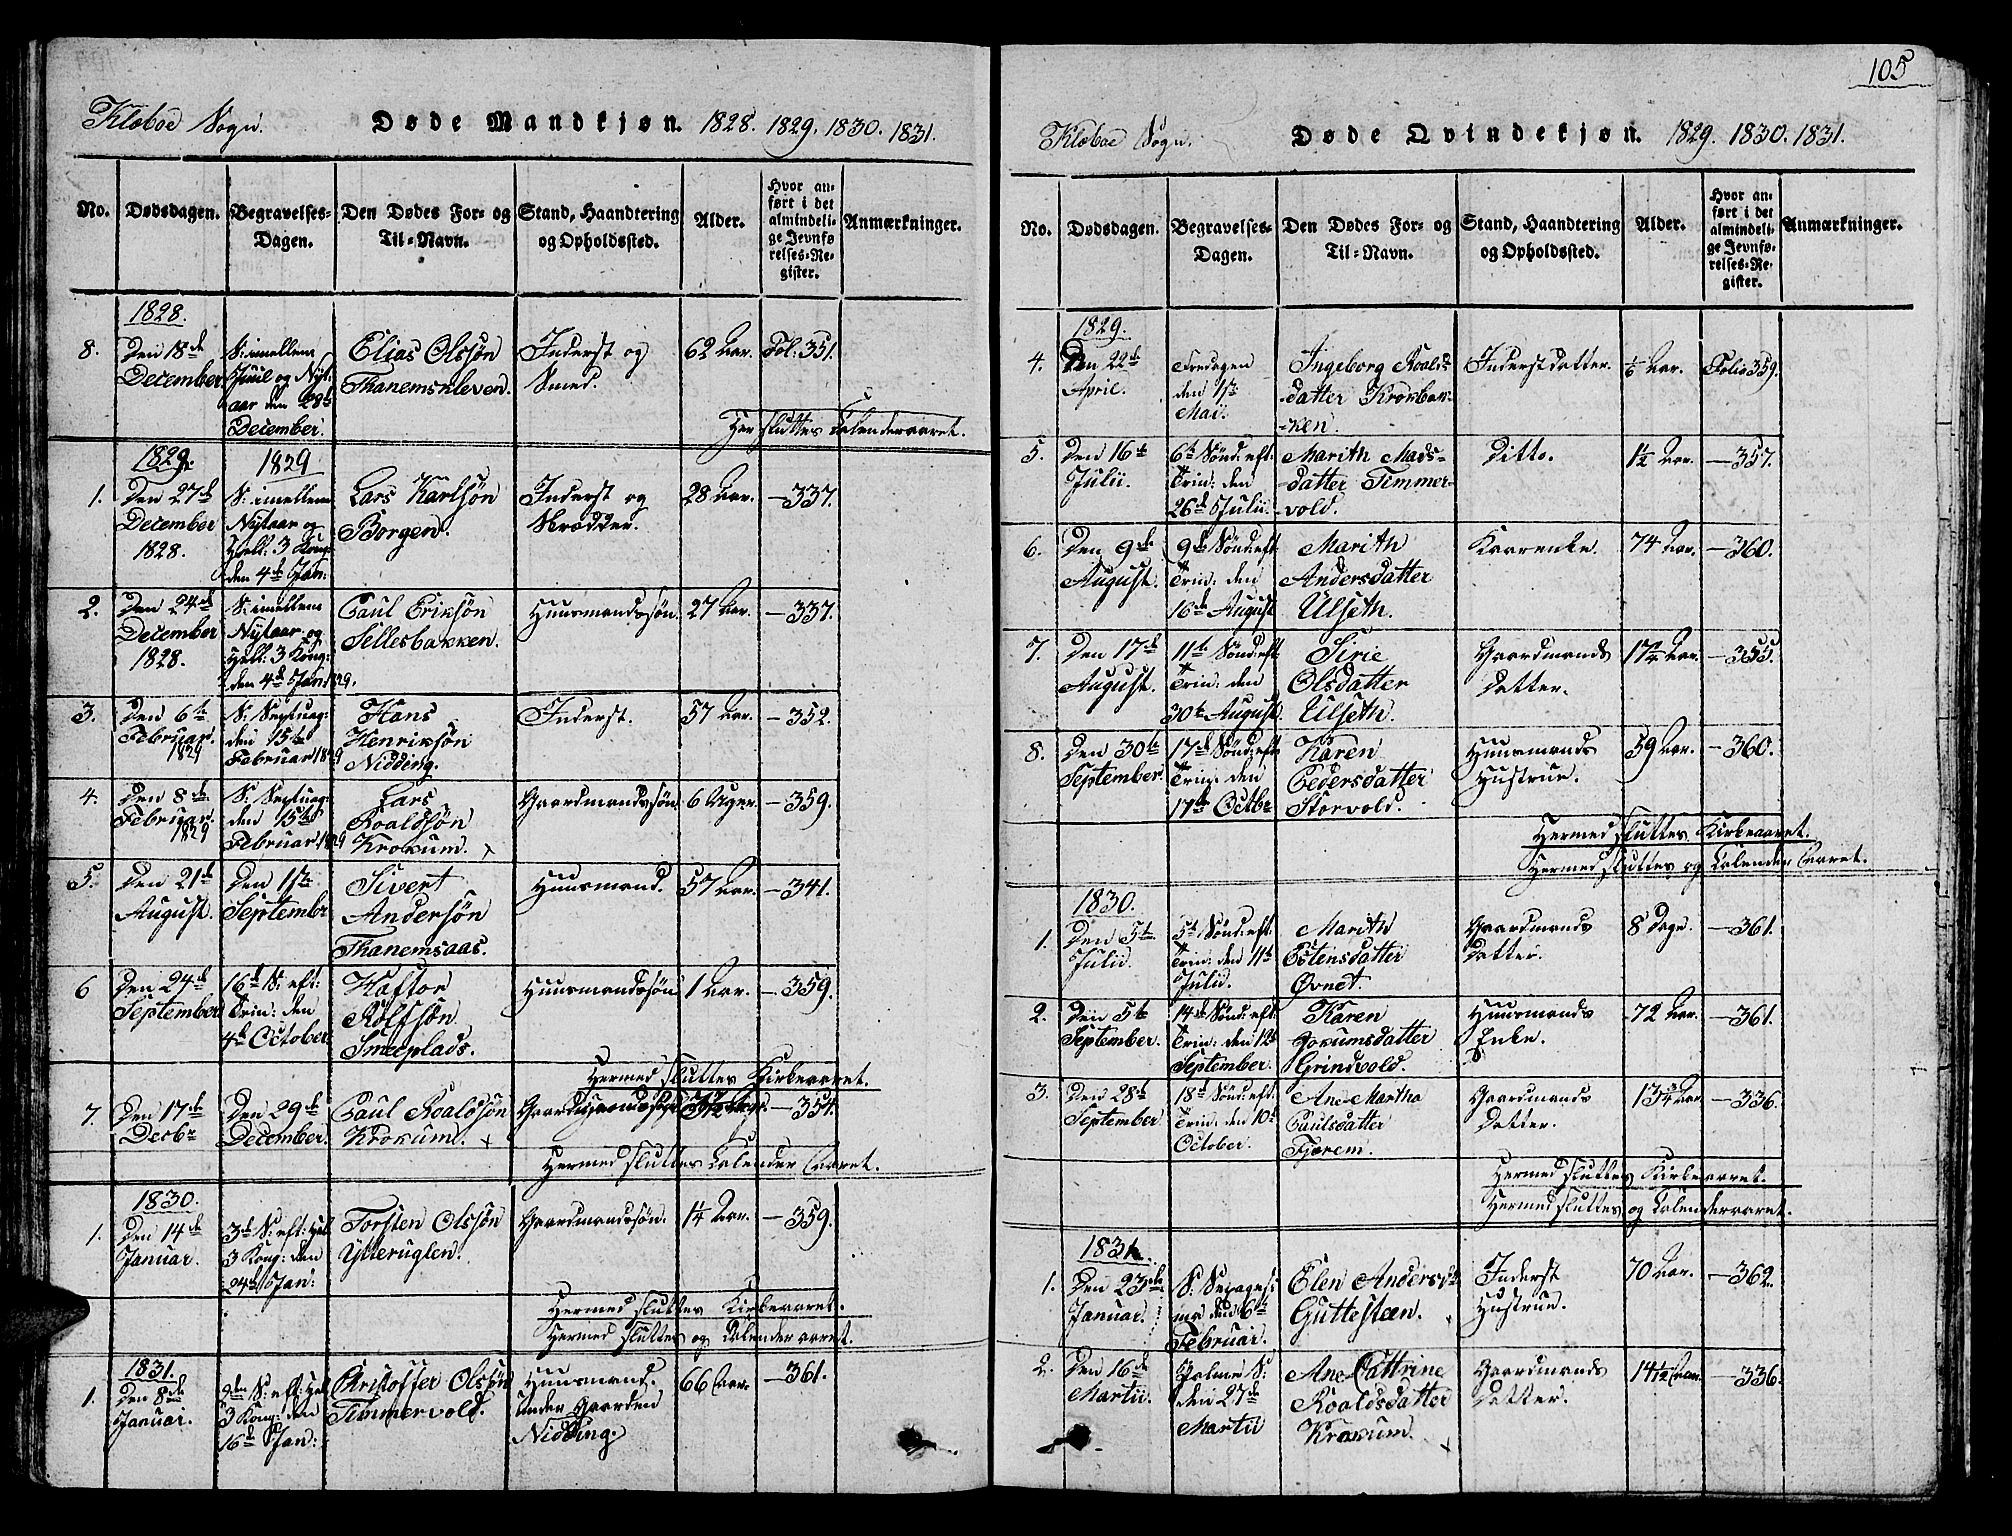 105
Klæboe Sogn. Døde Mandkjøn. 1828. 1829. 1830. 1831.
No. Dødsdagen. Begravelses-Dagen. Den Dødes For- og Til-Navn. Stand, Haandtering og Opholdssted. Alder. Hvor anført i det almindelige Jevnførelses-Register. Anmærkninger.
1828.
8. Den 18de S: imellem Elias Olssøn Inderst og 62 Aar. Fol: 351.
December Juul og Nyt- Thanemskleven. Smed.
aar den 28de
December.
Her sluttes Calenderaaret.
1829. 1829
1. Den 27de S: imellem Lars Karlsøn Inderst og 28 Aar. —337.
December Nytaar og Borgen. Skrædder.
1828. Hell: 3 Kong:
den 4de Jan:
2. Den 24de S: imellem Paul Eriksøn Huusmandssøn. 27 Aar. —337.
December Nytaar og Sellesbakken.
1828. Hell: 3 Kong:
den 4de Jan: 1829.
3. Den 6te S: Septuag: Hans Inderst. 57 Aar. —352.
Februar. den 15de Henriksøn
1829 Februar 1829 Nidding.
4. Den 8de S: Septuag: Lars Gaardmandssøn 6 Uger. —359.
Februar. den 15de Roaldsøn
1829 Februar 1829 Krokum.
5. Den 21de Den 1ste Sivert Huusmand. 57 Aar. —341.
August. Septembr Andersøn
Thanemsaas.
6 Den 24de 16de S: eft: Haftor Huusmandssøn 1 Aar. —359.
September Trin: den Rolfsøn
4de October. Smeeplads.
Hermed sluttes Kirkeaaret.
7. Den 17de Den 29de Paul Roaldsøn —354.
Decbr December. Krokum.
Hermed sluttes Calender Aaret.
1830.
1. Den 14de 3de S: eft: Hel Torsten Olssøn Gaardmandssøn. 1/4 Aar. —359.
Januar. 3 Kong: den Ytteruglen.
24de Jan:
Hermed sluttes Kirkeaaret.
Hermed sluttes og Calenderaaret.
1831.
1. Den 8de S: eft: Hel Christoffer Olssøn Huusmand. 66 Aar. —361.
Januar. 3 Kong: den Timmervold. under Gaarden
16de Jan: Nidding.
Klæboe Sogn. Døde Qvindekjøn. 1829. 1830. 1831.
No. Dødsdagen. Begravelses-Dagen. Den Dødes For- og Til-Navn. Stand, Haandtering og Opholdssted. Alder. Hvor anført i det almindelige Jevnførelses-Register. Anmærkninger.
1829.
4. Den 22de Fredagen Ingeborg Roalds- Inderstdatter. 1/6 Aar. Folio 359.
April. den 1ste datter Krokbak-
Maii. -ken.
5. Den 16de 6te Sønd: eft. Marith Mads- Ditto. 1/2 Aar. —357.
Julii. Trin: den datter Timmer-
26de Julii. -vold.
6. Den 9de 9de Sønd: eft Marith Kaarenke. 74 Aar. —360.
August. Trin: den Andersdatter
16de August Ulseth.
7. Den 17de 11te Sønd: eft Sirie Gaardmands —355.
August. Trin: den Olsdatter Datter.
30te August. Ulseth.
8. Den 30te 17de Sønd: eft Karen Huusmands 59 Aar. —360.
September. Trin: den Pedersdatter Hustrue.
Octbr Storvold.
Hermed sluttes Kirkeaaret.
Hermed sluttes og Calender Aaret.
1830.
1. Den 5te 5te Sønd: eft: Marith Gaardmands 8 Dage. —361.
Julii. Trin: den 11te Estensdatter Datter.
Julii. Øvnet.
2. Den 5te 14de Sønd: eft Karen Huusmands 72 Aar. —361.
September. Trin: den 12te Jokumsdatter Enke.
September. Grindvold.
3. Den 28de 18de Sønd: eft Ane Martha Gaardmands —336.
September Trin: den 10de Paulsdatter Datter.
October. Fjærem.
Hermed sluttes Kirkeaaret.
Hermed sluttes og Calenderaaret.
1831.
1. Den 23de S: Elen Andersd: Inderst 70 Aar. —362.
Januar. den 6te Guttesteen. Hustrue.
Februar.
2. Den 16de Palme S: Ane Cathrine Gaardmands 14 1/2 Aar. —336.
Martii. den 27de Roaldsdatter Datter.
Martii Krokum.